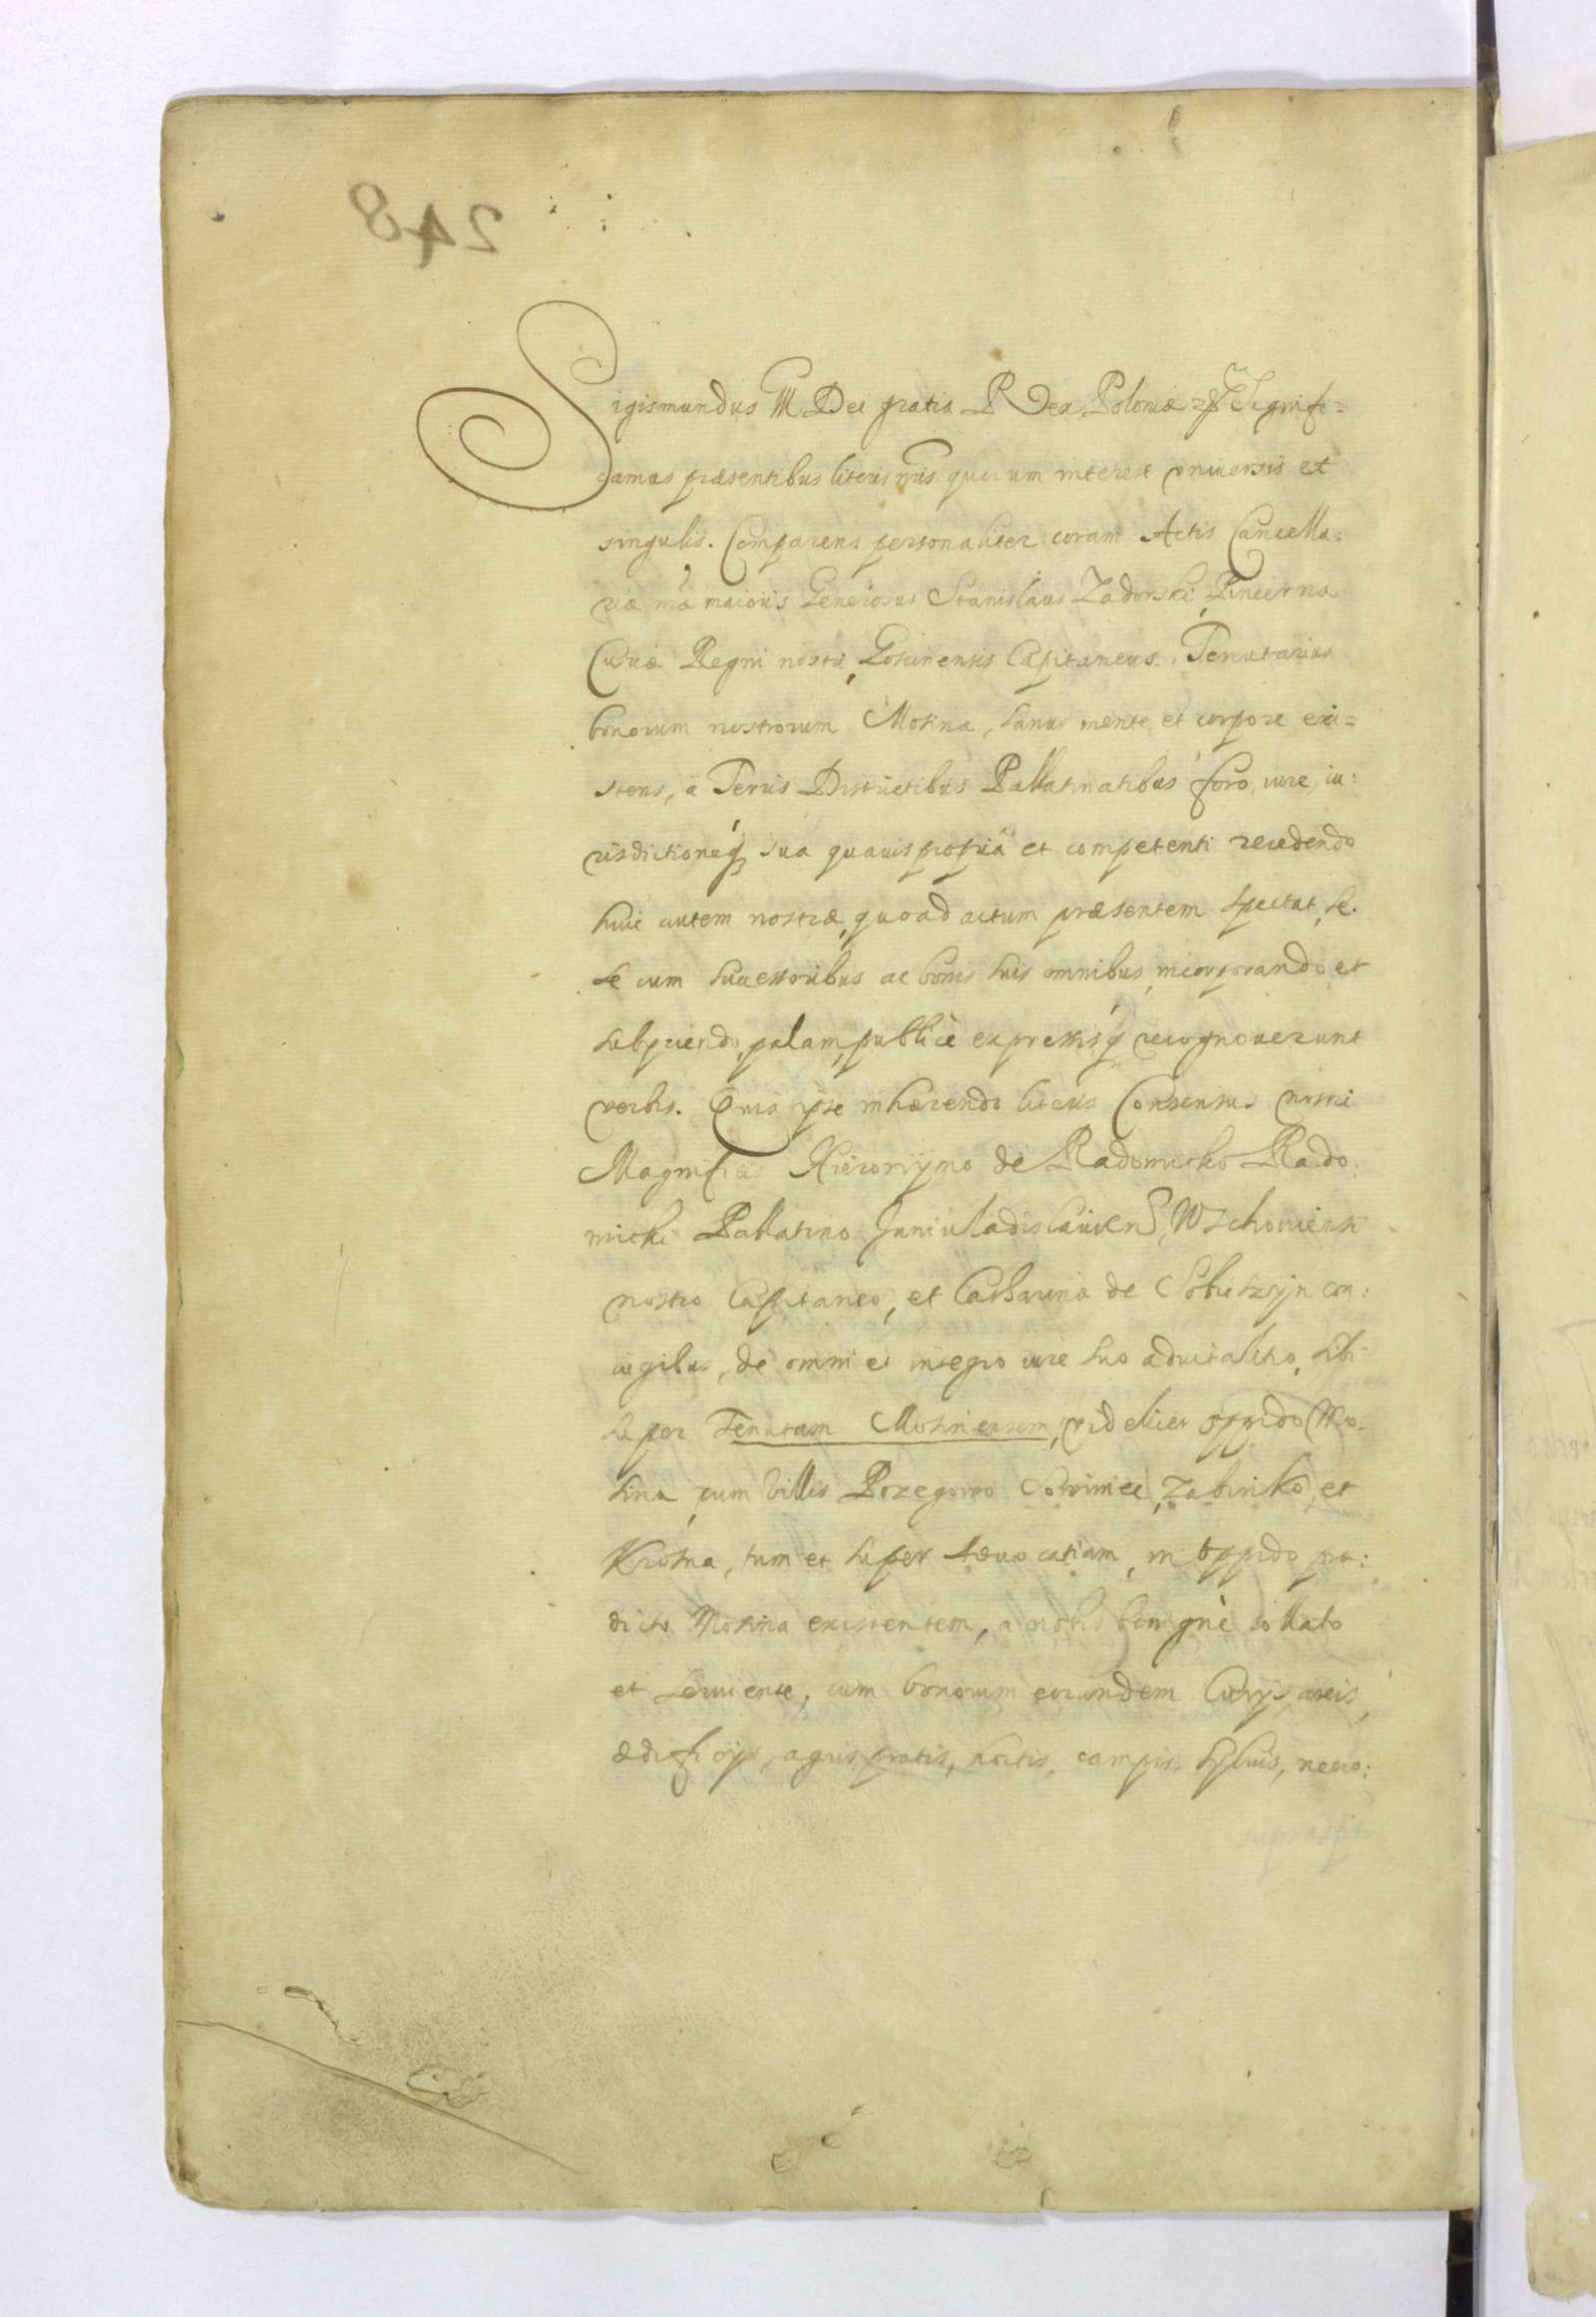 248
Sigismundus III Dei gratia Rex Poloniæ &c. Signifi=
camus præsentibus literis nr̄is quorum interest vniuersis et
singulis. Comparens personaliter coram Actis Cancella:
riæ nr̄æ maioris Generosus Stanislaus Zadorski, Pincerna
Curiæ Regni nostri, Gostinensis Capitaneus, Tenutarius
bonorum nostrorum Mosina, sanus mente et corpore exi=
stens, à Terris Districtibus Pallatinatibus foro, iure, iu:
risdictioneq₃ sua quauis propria et competenti recedendo
huic autem nostræ, quo ad actum præsentem spectat, se.
se cum successoribus ac bonis suis omnibus, incorporando et
subijciendo, palam, publicè expressisq₃ recognouerunt
verbis. Quia ipse inhærendo literis Consensus nostri
Magnificis Hieronymo de Radomicko Rado
micki Pallatino Juniuladislauien̄, Wschouiensi
nostro Capitaneo, et Catharina de con:
iugibus, de omni et integro iure suo aduitalitio, sibi
super Tenutam Mosinensem, videlicet oppido Mo:
sina, cum villis Przegowo Sowiniec, Zabinko, et
Krosna, tum et super Aduocatiam, in oppido præ:
dicto Mosina existentem, a nobis benignè collato
et seruiente, cum bonorum eorundem Curijs, areis,
ædificijs, agris, pratis, hortis, campis, syluis, nemo: